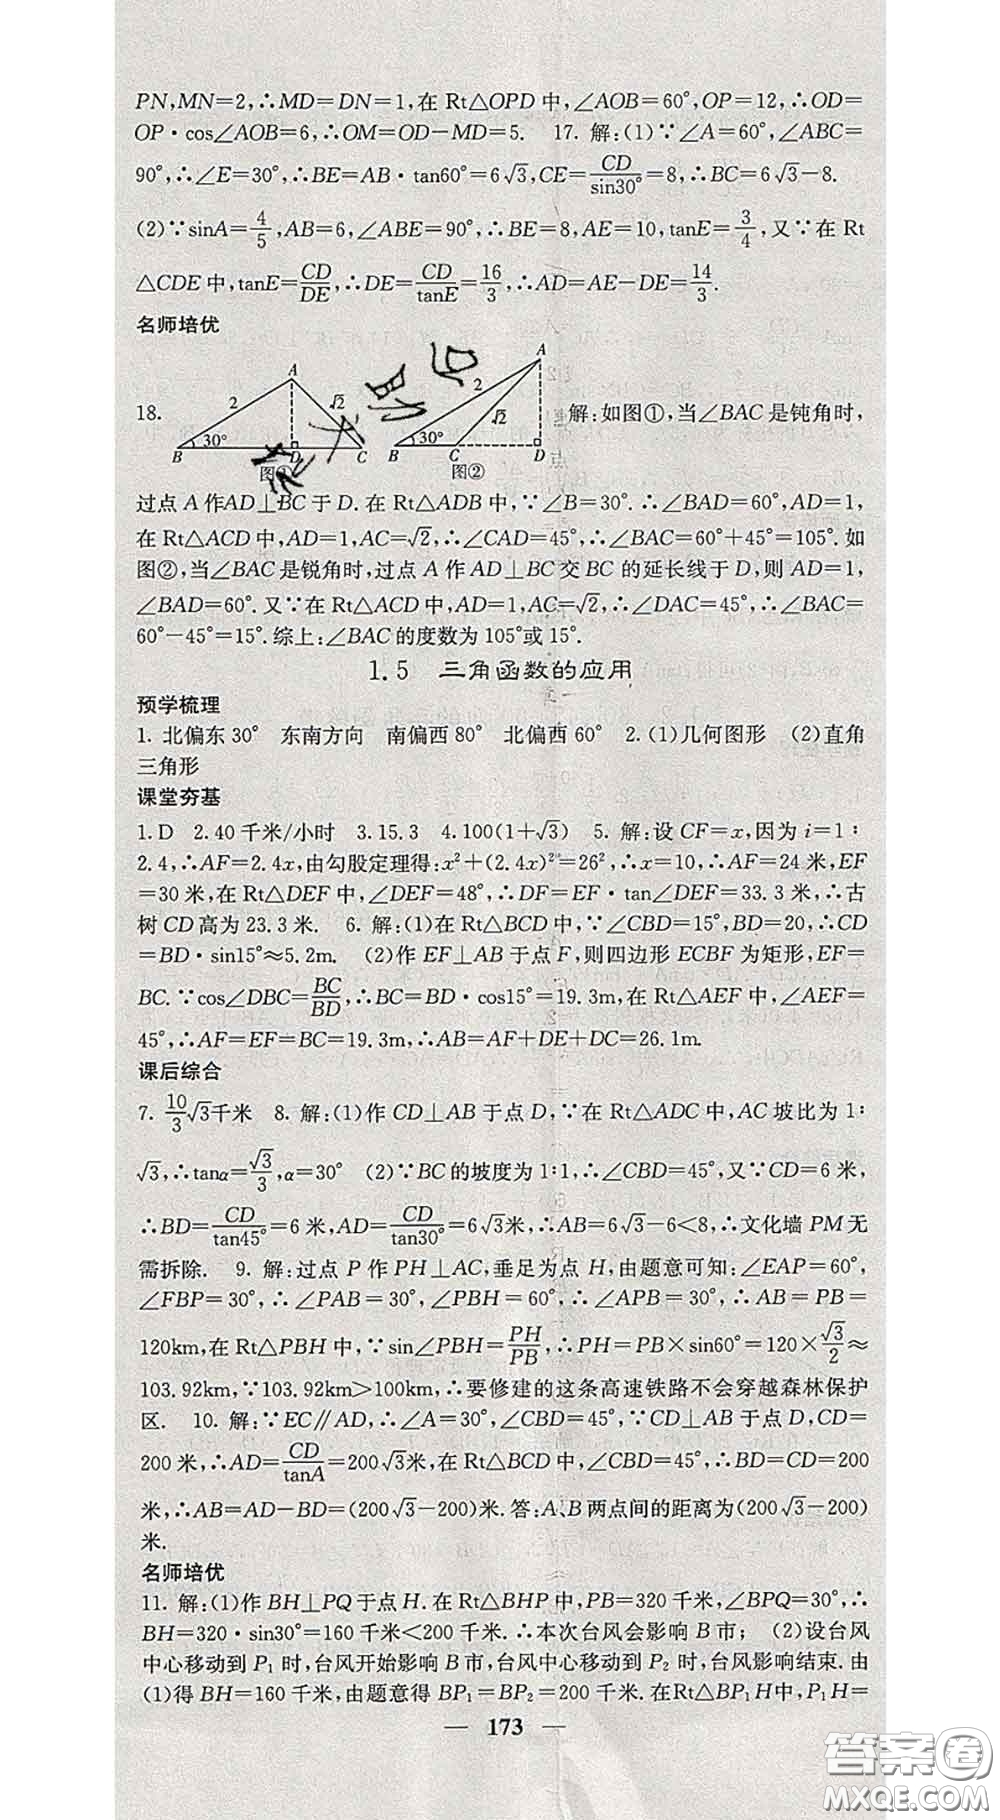 PN,MN=2,∴MD=DN=1,在 Rt△OPD 中,∠AOB=60°,OP=12,∴OD=
OP·cos∠AOB=6,∴OM=OD-MD=5. 17. 解:(1)∵∠A=60°,∠ABC=
90°,∴∠E=30°,∴BE=AB·tan60°=6√3,CE=CD/sin30°=8,∴BC=6√3-8.
(2)∵sinA=4/5,AB=6,∠ABE=90°,∴BE=8,AE=10,tanE=3/4,又∵在 Rt
△CDE 中,tanE=CD/DE,∴DE=CD/tanE=16/3,∴AD=AE-DE=14/3.
名师培优
18.
A
2
√2
30°
B
D
C
图①
A
2
√2
30°
B
C
D
图②
解:如图①,当∠BAC 是钝角时,
过点 A 作AD⊥BC 于 D.在 Rt△ADB 中,∵∠B=30°.∴∠BAD=60°,AD=1,
在 Rt△ACD 中,AD=1,AC=√2,∴∠CAD=45°,∴∠BAC=60°+45°=105°.如
图②,当∠BAC 是锐角时,过点 A 作 AD⊥BC 交 BC 的延长线于 D,则 AD=1,
∠BAD=60°.又∵在 Rt△ACD 中,AD=1,AC=√2,∴∠DAC=45°,∴∠BAC=
60°-45°=15°.综上:∠BAC 的度数为 105°或 15°.
1.5 三角函数的应用
预学梳理
1. 北偏东 30° 东南方向 南偏西 80° 北偏西 60° 2. (1)几何图形 (2)直角
三角形
课堂夯基
1. D 2. 40 千米/小时 3. 15.3 4. 100(1+√3) 5. 解:设 CF=x,因为 i=1∶
2.4,∴AF=2.4x,由勾股定理得:x²+(2.4x)²=26²,∴x=10,∴AF=24 米,EF
=30 米,在 Rt△DEF 中,∠DEF=48°,∴DF=EF·tan∠DEF=33.3 米,∴古
树 CD 高为 23.3 米. 6. 解:(1)在 Rt△BCD 中,∵∠CBD=15°,BD=20,∴CD
=BD·sin15°≈5.2m. (2)作 EF⊥AB 于点 F,则四边形 ECBF 为矩形,EF=
BC.∵cos∠DBC=BC/BD,∴BC=BD·cos15°=19.3m,在 Rt△AEF 中,∠AEF=
45°,∴AF=EF=BC=19.3m,∴AB=AF+DE+DC=26.1m.
课后综合
7. 10/3√3千米 8. 解:(1)作 CD⊥AB 于点 D,∵在 Rt△ADC 中,AC 坡比为 1∶
√3,∴tanα=√3/3,α=30° (2)∵BC 的坡度为 1∶1,∴∠CBD=45°,又∵CD=6 米,
∴BD=CD/tan45°=6 米,AD=CD/tan30°=6√3米,∴AB=6√3-6<8,∴文化墙 PM 无
需拆除. 9. 解:过点 P 作 PH⊥AC,垂足为点 H,由题意可知:∠EAP=60°,
∠FBP=30°,∴∠PAB=30°,∠PBH=60°,∴∠APB=30°,∴AB=PB=
120km,在 Rt△PBH 中,∵sin∠PBH=PH/PB,∴PH=PB×sin60°=120×√3/2≈
103.92km,∵103.92km>100km,∴要修建的这条高速铁路不会穿越森林保护
区. 10. 解:∵EC∥AD,∴∠A=30°,∠CBD=45°,∵CD⊥AB 于点 D,CD=
200 米,∴AD=CD/tanA=200√3米,在 Rt△BCD 中,∠CBD=45°,∴BD=CD=200
米,∴AB=AD-BD=(200√3-200)米.答:A、B 两点间的距离为(200√3-200)
米.
名师培优
11. 解:(1)作 BH⊥PQ 于点 H.在 Rt△BHP 中,PB=320 千米,∠BPQ=30°,∴
BH=320·sin30°=160 千米<200 千米.∴本次台风会影响 B 市; (2)设台风
中心移动到 P₁ 时,台风开始影响 B 市,台风中心移动到 P₂ 时,台风影响结束.由
(1)得 BH=160 千米,由题意得 BP₁=BP₂=200 千米.在Rt△BP₁H中,P₁H=
— 173 —
答案圈
MXQE.COM